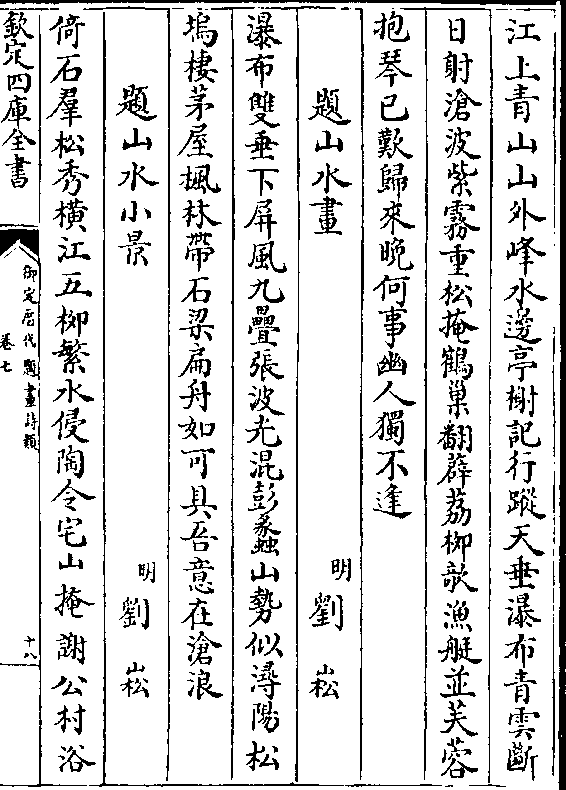 江上青山山外峰水邊亭榭記行蹤天垂瀑布青雲斷
日射滄波紫霧重松掩鶴巢翻薜荔柳欹漁艇並芙蓉
抱琴已歎歸來晚何事幽人獨不逢
題山水畫　明劉崧
瀑布雙垂下屏風九疊張波光混彭蠡山勢似潯陽松
塢棲茅屋楓林帶石梁扁舟如可具吾意在滄浪
題山水小景　明劉崧
倚石羣松秀橫江五柳繁水侵陶令宅山掩謝公村浴
欽定四庫全書
御定歴代題畫詩類
卷七
十八